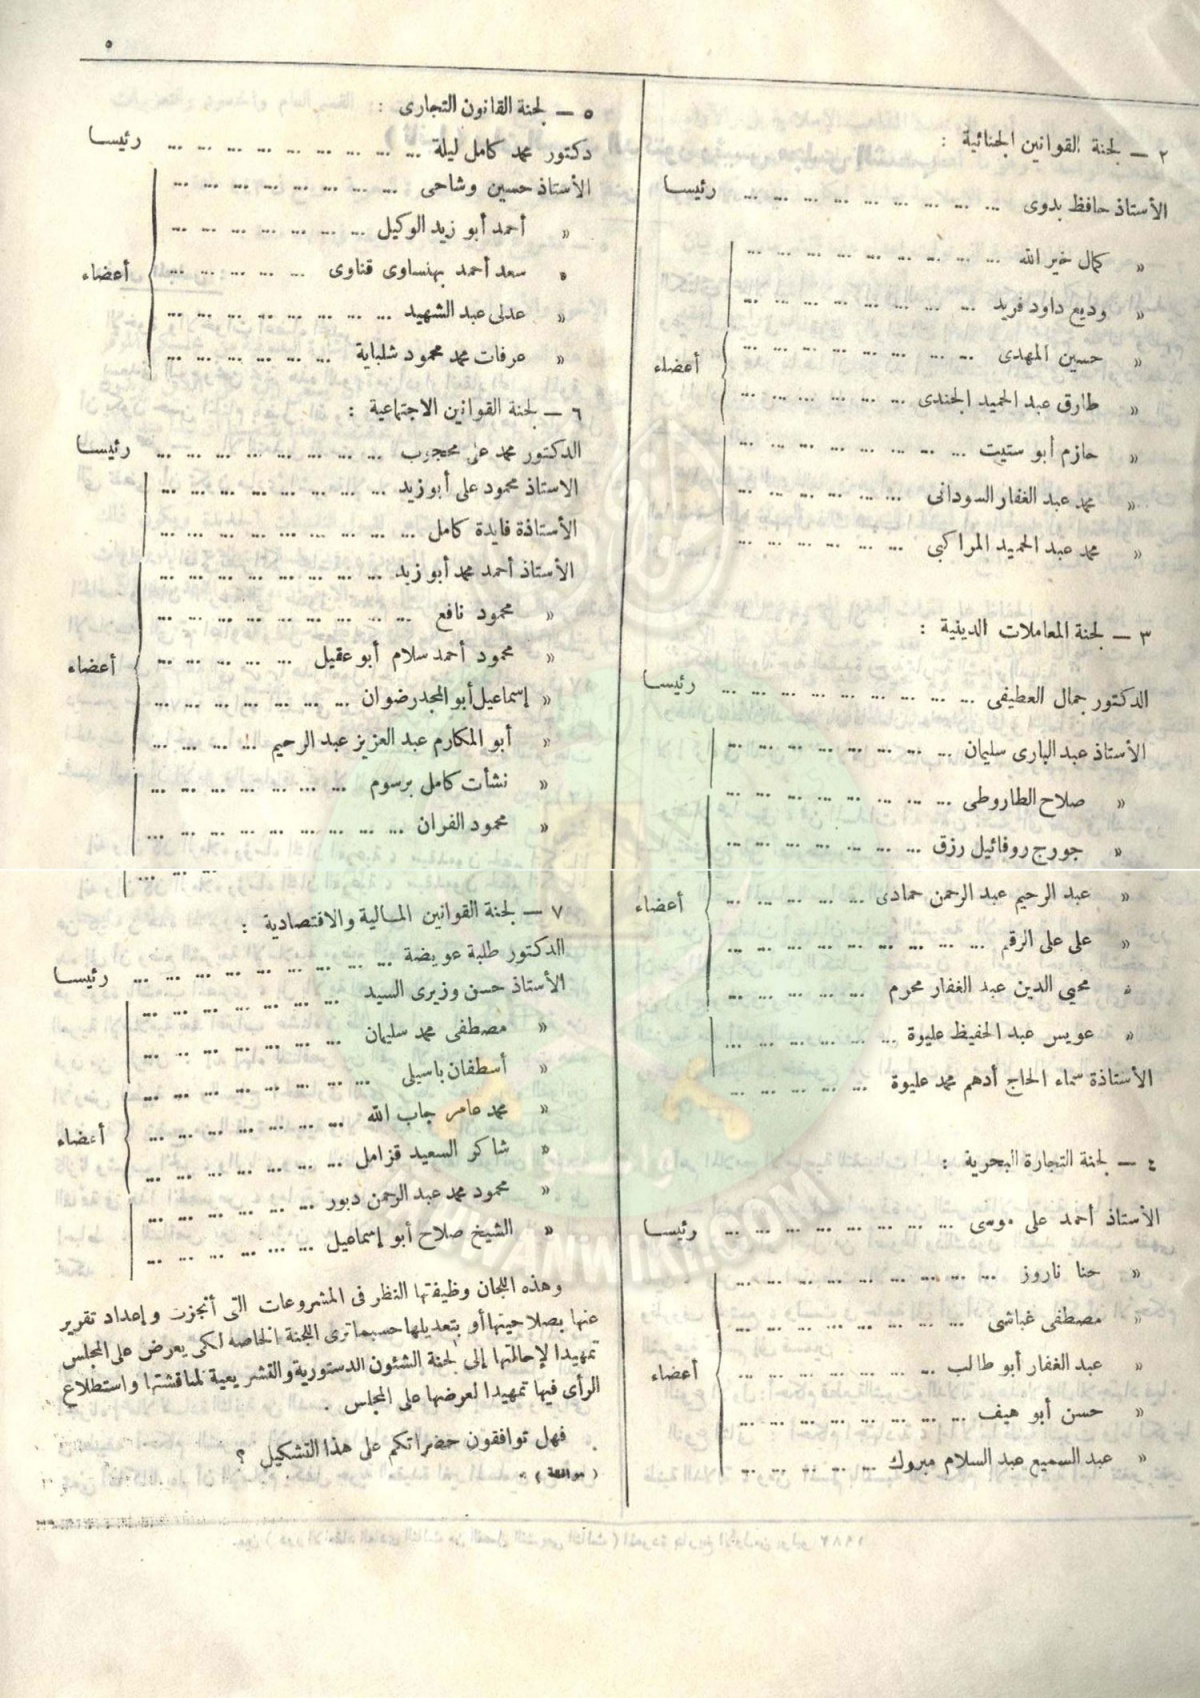 ٥
٢ — لجنة القوانين الجنائية :
الأستاذ حافظ بدوى ... ... ... ... ... ... ... ... رئيسا
« كمال خير الله ... ... ... ... ... ... ... ...
« وديع داود فريد ... ... ... ... ... ... ... ...
« حسين المهدى ... ... ... ... ... ... ... ...
أعضاء
« طارق عبد الحميد الجندى ... ... ... ... ...
« حازم أبو ستيت ... ... ... ... ... ... ... ...
« محمد عبد الغفار السودانى ... ... ... ... ... ...
« محمد عبد الحميد المواكبى ... ... ... ... ... ...
٣ — لجنة المعاملات الدينية :
الدكتور جمال العطيفى ... ... ... ... ... ... ... ... ... رئيسا
الأستاذ عبد البارى سليمان ... ... ... ... ... ... ... ...
« صلاح الطاروطى ... ... ... ... ... ... ... ...
« جورج روفائيل رزق ... ... ... ... ... ... ...
« عبد الرحيم عبد الرحمن حمادى ... ... ... ... ...
أعضاء
« على على الرقم ... ... ... ... ... ... ... ... ...
« محيى الدين عبد الغفار محرم ... ... ... ... ... ...
« عويس عبد الحفيظ عليوة ... ... ... ... ... ...
الأستاذة سماء الحاج أدهم محمد عليوة ... ... ... ... ...
٤ — لجنة التجارة البحرية :
الأستاذ أحمد على موسى ... ... ... ... ... ... ... ... رئيسا
« حنا ناروز ... ... ... ... ... ... ... ... ...
« مصطفى غباشى ... ... ... ... ... ... ... ...
« عبد الغفار أبو طالب ...
أعضاء
« حسن أبو هيف ... ... ... ... ... ... ... ...
« عبد السميع عبد السلام مبروك ... ... ... ... ...
٥ — لجنة القانون التجارى :
دكتور محمد كامل ليلة ... ... ... ... ... ... ... ... ... رئيسا
الأستاذ حسين وشاحى ... ... ... ... ... ... ... ...
« أحمد أبو زيد الوكيل ... ... ... ... ... ... ...
« سعد أحمد بهنساوى قناوى ... ... ... ... ... ...
أعضاء
« عدلى عبد الشهيد ... ... ... ... ... ... ... ... ...
« عرفات محمد محمود شلباية ... ... ... ... ... ...
٦ — لجنة القوانين الاجتماعية :
الدكتور محمد على محجوب ... ... ... ... ... ... ... ... رئيسا
الاستاذ محمود على أبو زيد ... ... ... ... ... ... ... ...
الأستاذة فايدة كامل ... ... ... ... ... ... ... ... ...
الأستاذ أحمد محمد أبو زيد ... ... ... ... ... ... ... ...
« محمود نافع ... ... ... ... ... ... ... ... ...
« محمود أحمد سلام أبو عقيل ... ... ... ... ...
أعضاء
« إسماعيل أبو المجد رضوان ... ... ... ... ... ... ...
« أبو المكارم عبد العزيز عبد الرحيم ... ... ... ...
« نشأت كامل برسوم ... ... ... ... ... ... ...
« محمود الفران ... ... ... ... ... ... ... ... ...
٧ — لجنة القوانين المالية والاقتصادية :
الدكتور طلبة عويضة ... ... ... ... ... ... ... ... ... رئيسا
الأستاذ حسن وزيرى السيد ... ... ... ... ... ... ...
« مصطفى محمد سليمان ... ... ... ... ... ... ...
« أسطفان باسيلى ... ... ... ... ... ... ... ...
« محمد عامر جاب الله ... ... ... ... ... ... ...
أعضاء
« شاكر السعيد قزامل ... ... ... ... ... ... ...
« محمود محمد عبد الرحمن دبور ... ... ... ... ... ...
« الشيخ صلاح أبو إسماعيل ... ... ... ... ... ...
وهذه اللجان وظيفتها النظر فى المشروعات التى أنجزت وإعداد تقرير
عنها بصلاحيتها أو بتعديلها حسبما ترى اللجنة الخاصه لكى يعرض على المجلس
تمهيدا لإحالتها إلى لجنة الشئون الدستورية والتشريعية لمناقشتها واستطلاع
الرأى فيها تمهيدا لعرضها على المجلس .
فهل توافقون حضراتكم على هذا التشكيل ؟
( موافقة ) .
IKHWANWIKI.COM